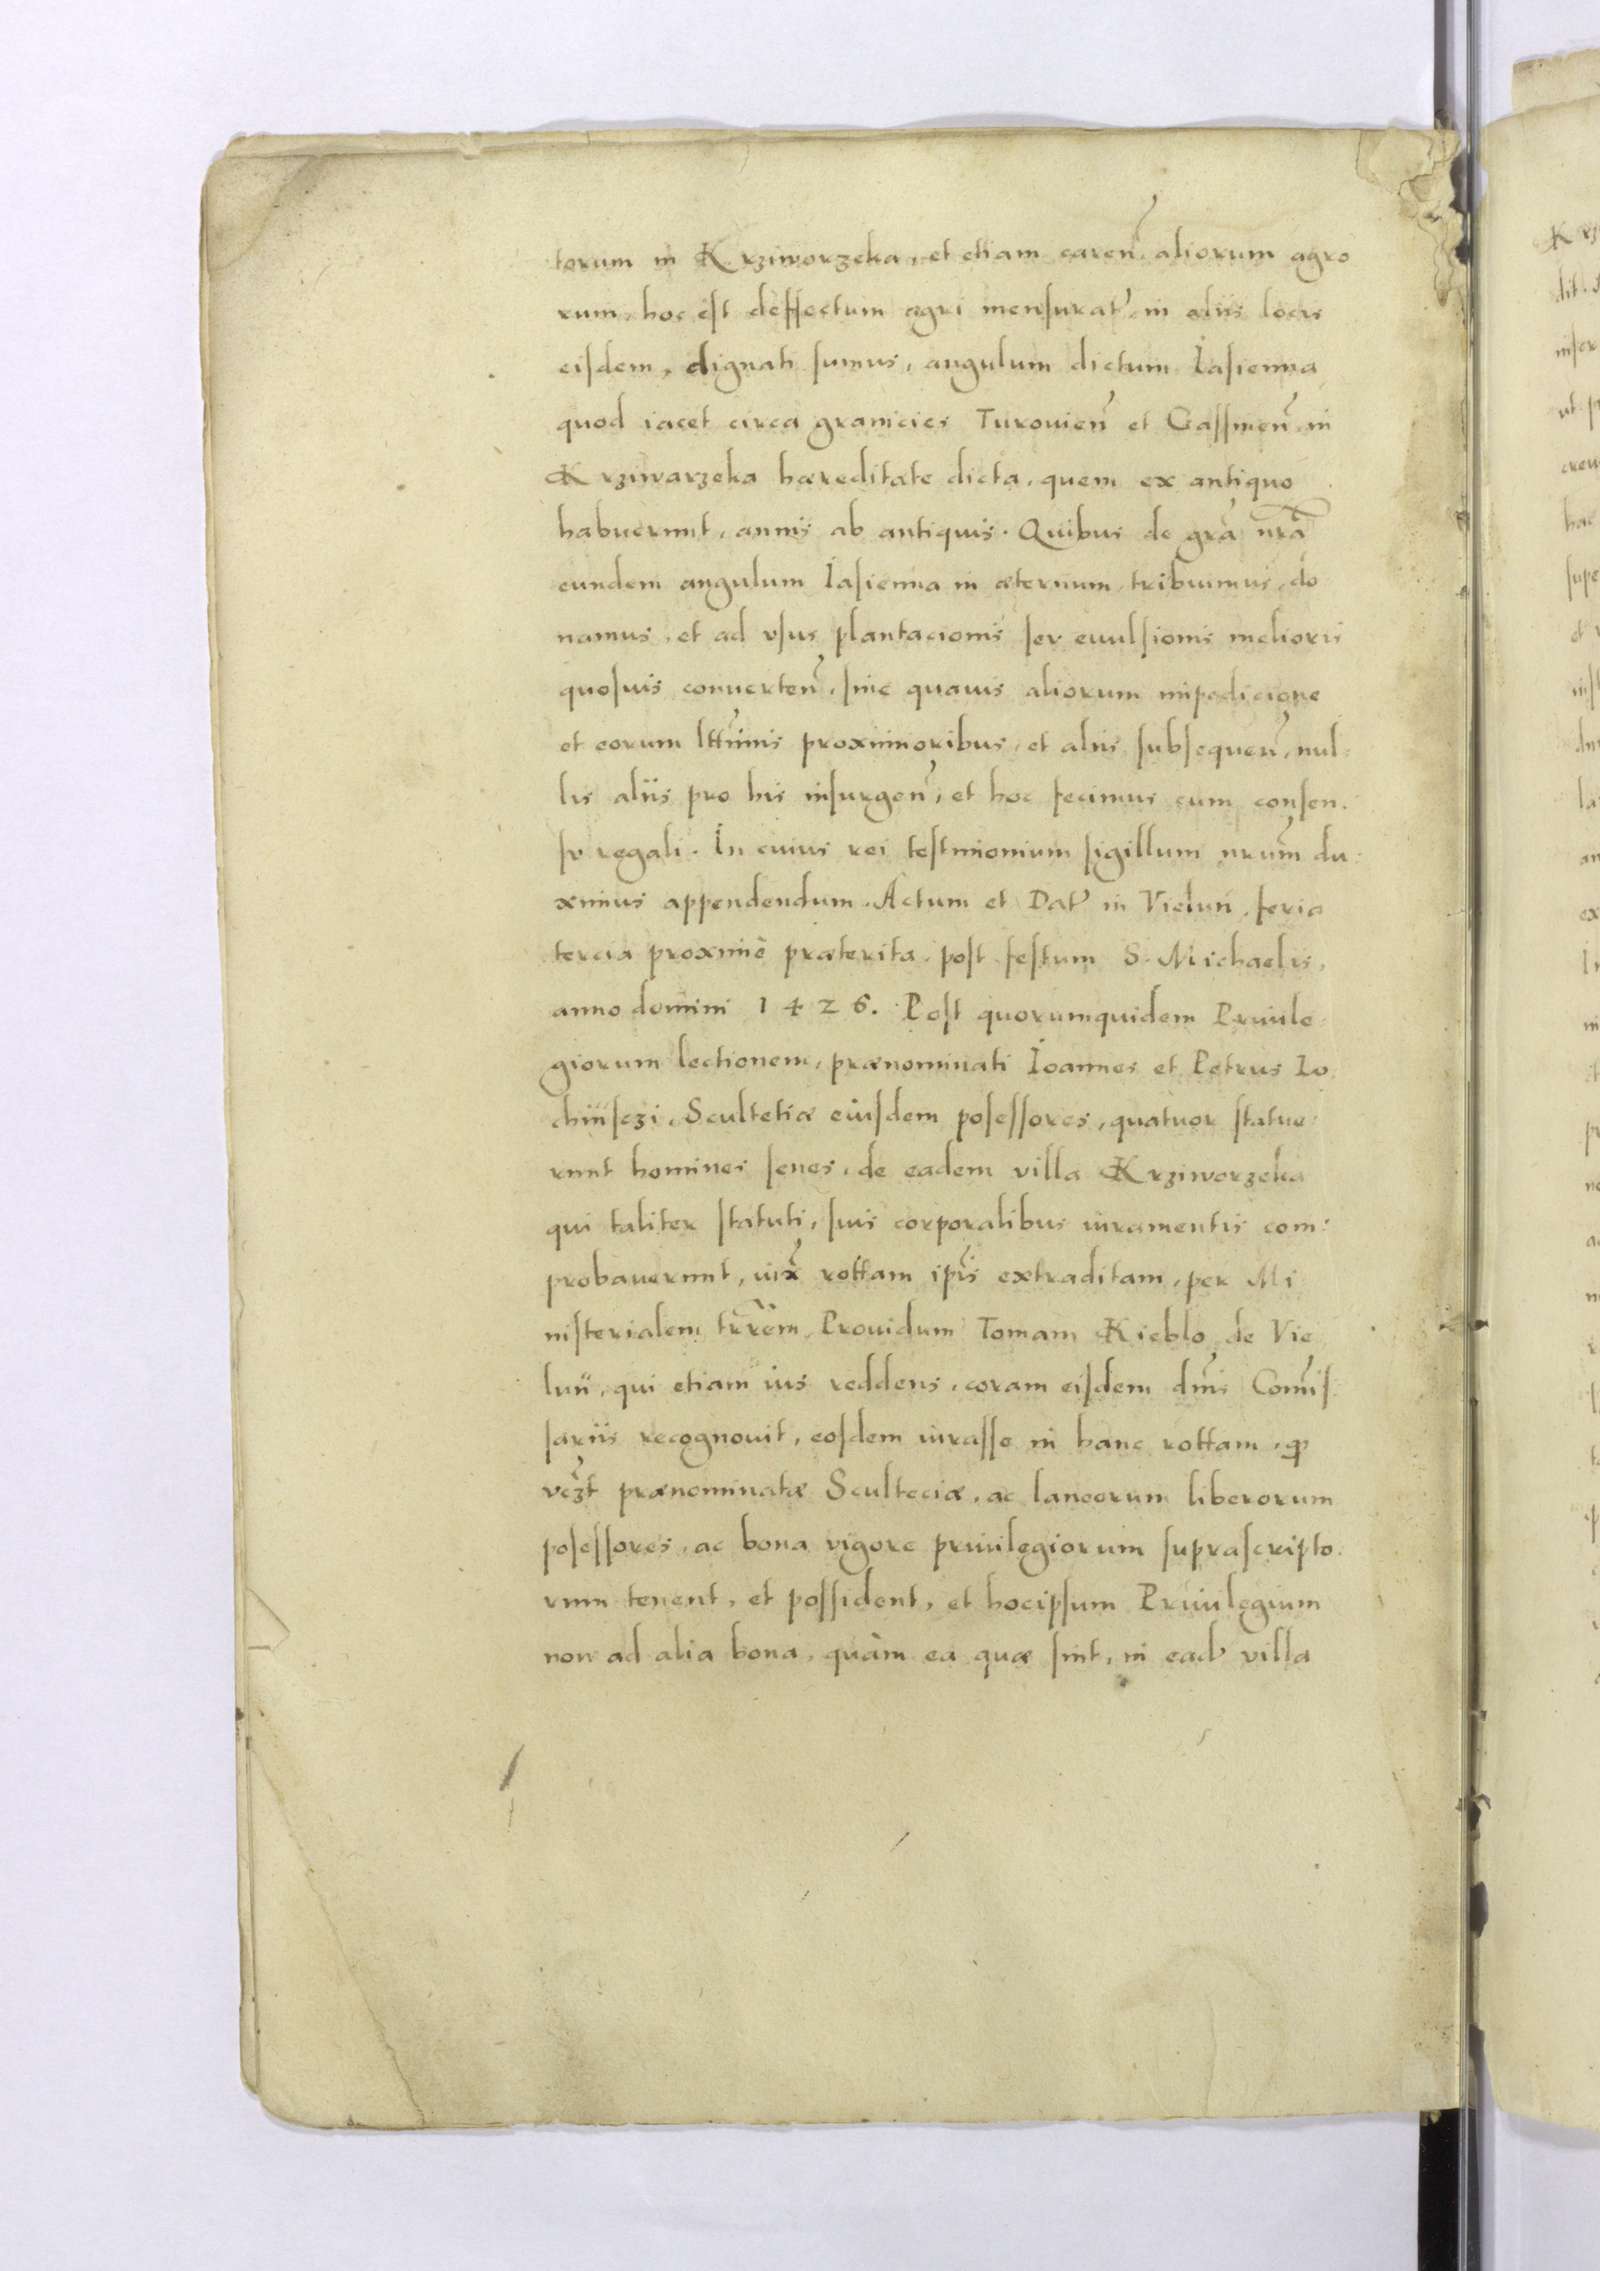 torum in Krziworzeka, et etiam caren̄ aliorum agro
rum, hoc est deffectum agri mensurat̄ in aliis locis
eisdem, dignati sumus, angulum dictum Iasienna
quod iacet circa granicies Turouien̄ et Gassinen̄ in
Krziwarzeka hæreditate dicta, quem ex antiquo
habuerunt, annis ab antiquis. Quibus de grã nrã
eundem angulum Iasienna in æternum tribuimus, do
namus, et ad vsus plantacionis seu euulsionis melioris
quosuis conuerten̄, sine quauis aliorum impedicione
et eorum lt̃timis proximioribus, et aliis subsequen̄, nul-
lis aliis pro his insurgen̄, et hoc fecimus cum consen-
su regali. In cuius rei testimonium sigillum nrum̃ du-
ximus appendendum. Actum et Dat̄ in Vielun, feria
tercia proximè præterita, post festum S. Michaelis,
anno domini 1426. Post quorumquidem Priuile-
giorum lectionem, prænominati Ioannes et Petrus Lo
chiñsczi, Scultetiæ eiusdem posessores, quatuor statue-
runt homines senes, de eadem villa Krziworzeka
qui taliter statuti, suis corporalibus iuramentis com-
probauerunt, iux̃ rottam ip̃is extraditam, per Mi
nisterialem tr̃rem, Prouidum Tomam Kieblo de Vie
luń, qui etiam ius reddens, coram eisdem dnĩs Com̃is-
sariis recognouit, eosdem iurasse in hanc rottam, ꝙ
vcz̃t prænominatæ Sculteciæ, ac laneorum liberorum
posessores, ac bona vigore priuilegiorum suprascripto-
rum tenent, et possident, et hocipsum Priuilegium
non ad alia bona, quàm ea quæ sint, in ead̄ villa